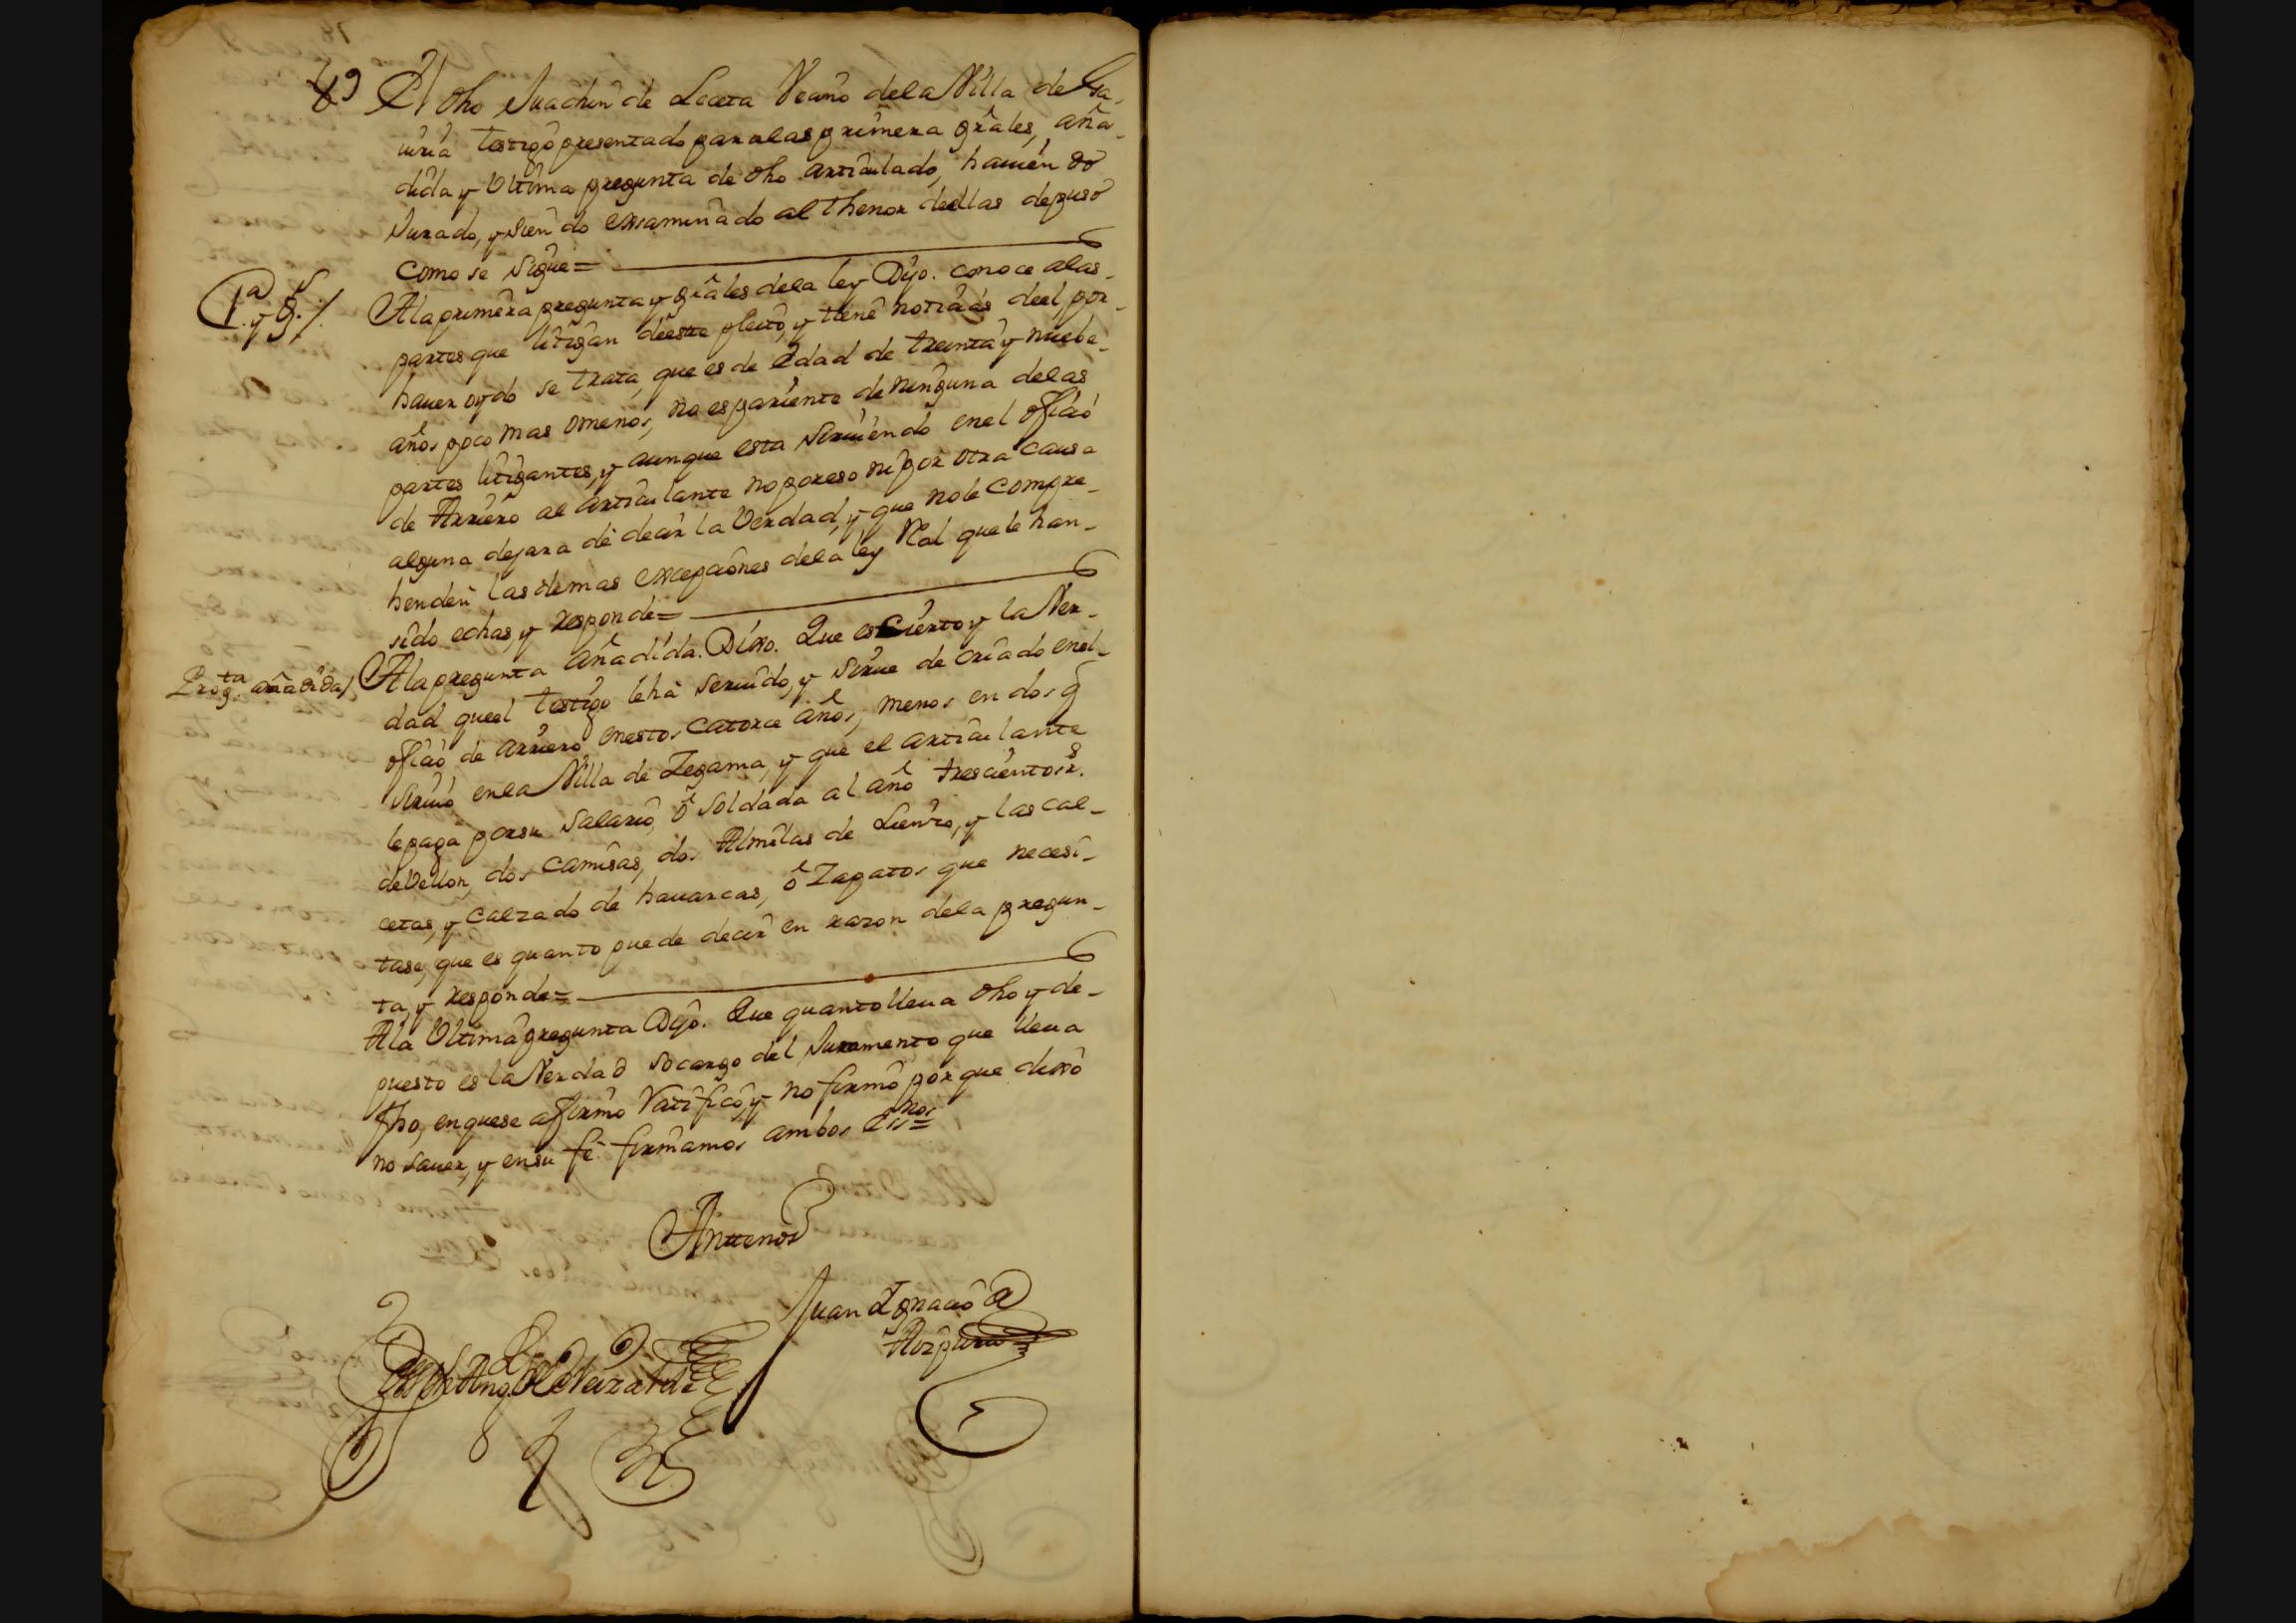 El dho Juachin de Loeta Veçino dela Villa de Ga-
uiria testigo presentado para las primera grâles, aña-
dida y Ultima pregunta de dho articulado, hauiendo
Jurado, y siendo exsaminado al thenor deellas depuso
como se sigue=
1ª y g.s / A la primera pregunta y grâles dela ley Dijo. conoce alas
partes que litigan deeste pleito, y tiene noticias deel, por
hauer oydo se trata, que es de edad de treinta y nuebe
años poco mas o menos, no es pariente de ninguna delas
partes litigantes, y aunque esta siruiendo enel oficio
de Arriero al articulante no por eso ni por otra causa
alguna dejara de decir la Verdad, y que nole compre-
henden las demas excepciones dela ley Real que le han
sido echas, y responde=
Preg.ta añadida / A la pregunta añadida. Dixo. Que es Cierto y la Ver-
dad queel testigo leha seruido, y sirue de criado enel
oficio de arriero enestos catorce años, menos en dos q̃
siruio enla Villa de Zegama, y que el articulante
lepaga por su salario, ô soldada al año trescientos r.s
de Vellon, dos camisas, dos Almillas de Lienzo, y las cal-
cetas, y calzado de hauarcas, ô Zapatos que necesi-
tase, que es quanto puede decir en razon dela pregun-
ta, y responde=
A la Ultima pregunta Dijo. Que quanto lleua dho y de-
puesto es la Verdad so cargo del Juramento que lleua
fho, en que se afirmo Ratifico, y no firmo por que dixo
no sauer, y en su fe firmamos ambos ess.nos=
Antenos
Juan Ignacio de
Aizpuru